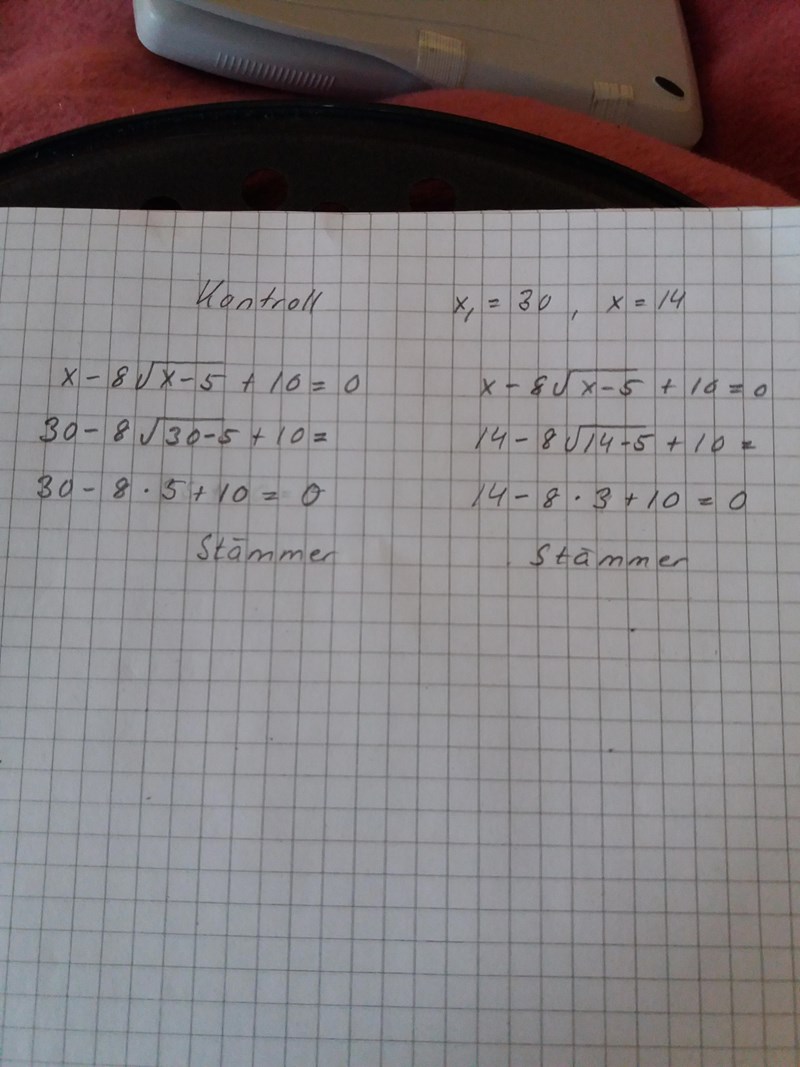 Kontroll x₁ = 30 , x = 14
x - 8√(x-5) + 10 = 0
30 - 8√(30-5) + 10 =
30 - 8 · 5 + 10 = 0
Stämmer
x - 8√(x-5) + 10 = 0
14 - 8√(14-5) + 10 =
14 - 8 · 3 + 10 = 0
Stämmer